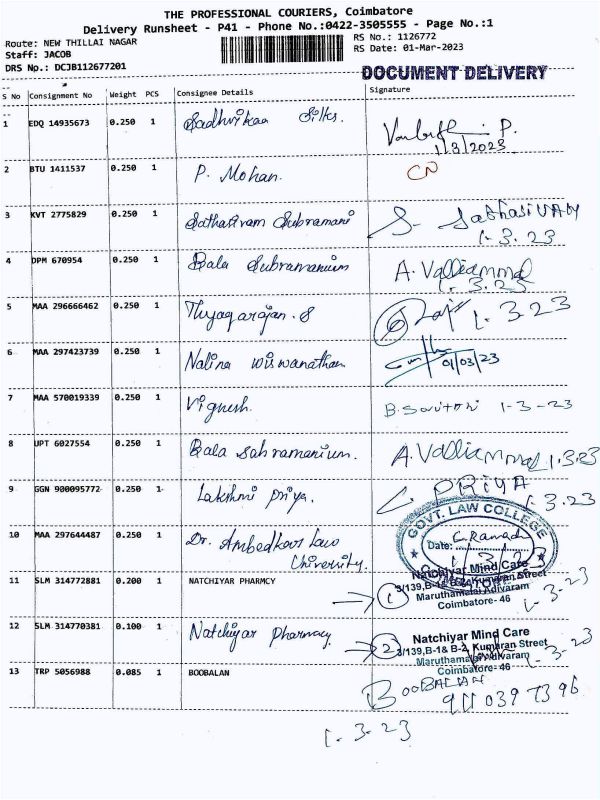 THE PROFESSIONAL COURIERS, Coimbatore
Delivery Runsheet - P41 - Phone No.:0422-3505555 - Page No.:1
Route: NEW THILLAI NAGAR RS No.: 1126772
Staff: JACOB RS Date: 01-Mar-2023
DRS No.: DCJB112677201
DOCUMENT DELIVERY
S No Consignment No Weight PCS Consignee Details Signature
1 EDQ 14935673 0.250 1 Sadhvikaa Silks.
P.
1/3/2023
2 BTU 1411537 0.250 1 P. Mohan. CN
3 KVT 2775829 0.250 1 Sathasivam Subramani S- SathasiVAM
1.3.23
4 DPM 670954 0.250 1 Bala Subramanium A. Valliammal
1.3.23
5 MAA 296666462 0.250 1 Thyagarajan. S 1.3.23
6 MAA 297423739 0.250 1 Nalina Wiswanathan
01/03/23
7 MAA 570019339 0.250 1 Vignesh. B. Savitori 1-3-23
8 UPT 6027554 0.250 1 Bala Sahramanium. A. Valliammal 1.3.23
9 GGN 900095772 0.250 1 Lakshmi Priya. L. PRIYA
1.3.23
10 MAA 297644487 0.250 1 Dr. Ambedkoor Law
University.
GOVT. LAW COLLEGE
Date:
11 SLM 314772881 0.200 1 NATCHIYAR PHARMCY 1
Natchiyar Mind Care
3/139,B-1& B-2, Kumaran Street
Maruthamalai Adivaram
Coimbatore- 46
1-3-23
12 SLM 314770381 0.100 1 Natchiyar Pharmacy 2
Natchiyar Mind Care
3/139,B-1& B-2, Kumaran Street
Maruthamalai Adivaram
Coimbatore- 46
1-3-23
13 TRP 5056988 0.085 1 BOOBALAN BOOBALAN
911 039 7396
1.3.23